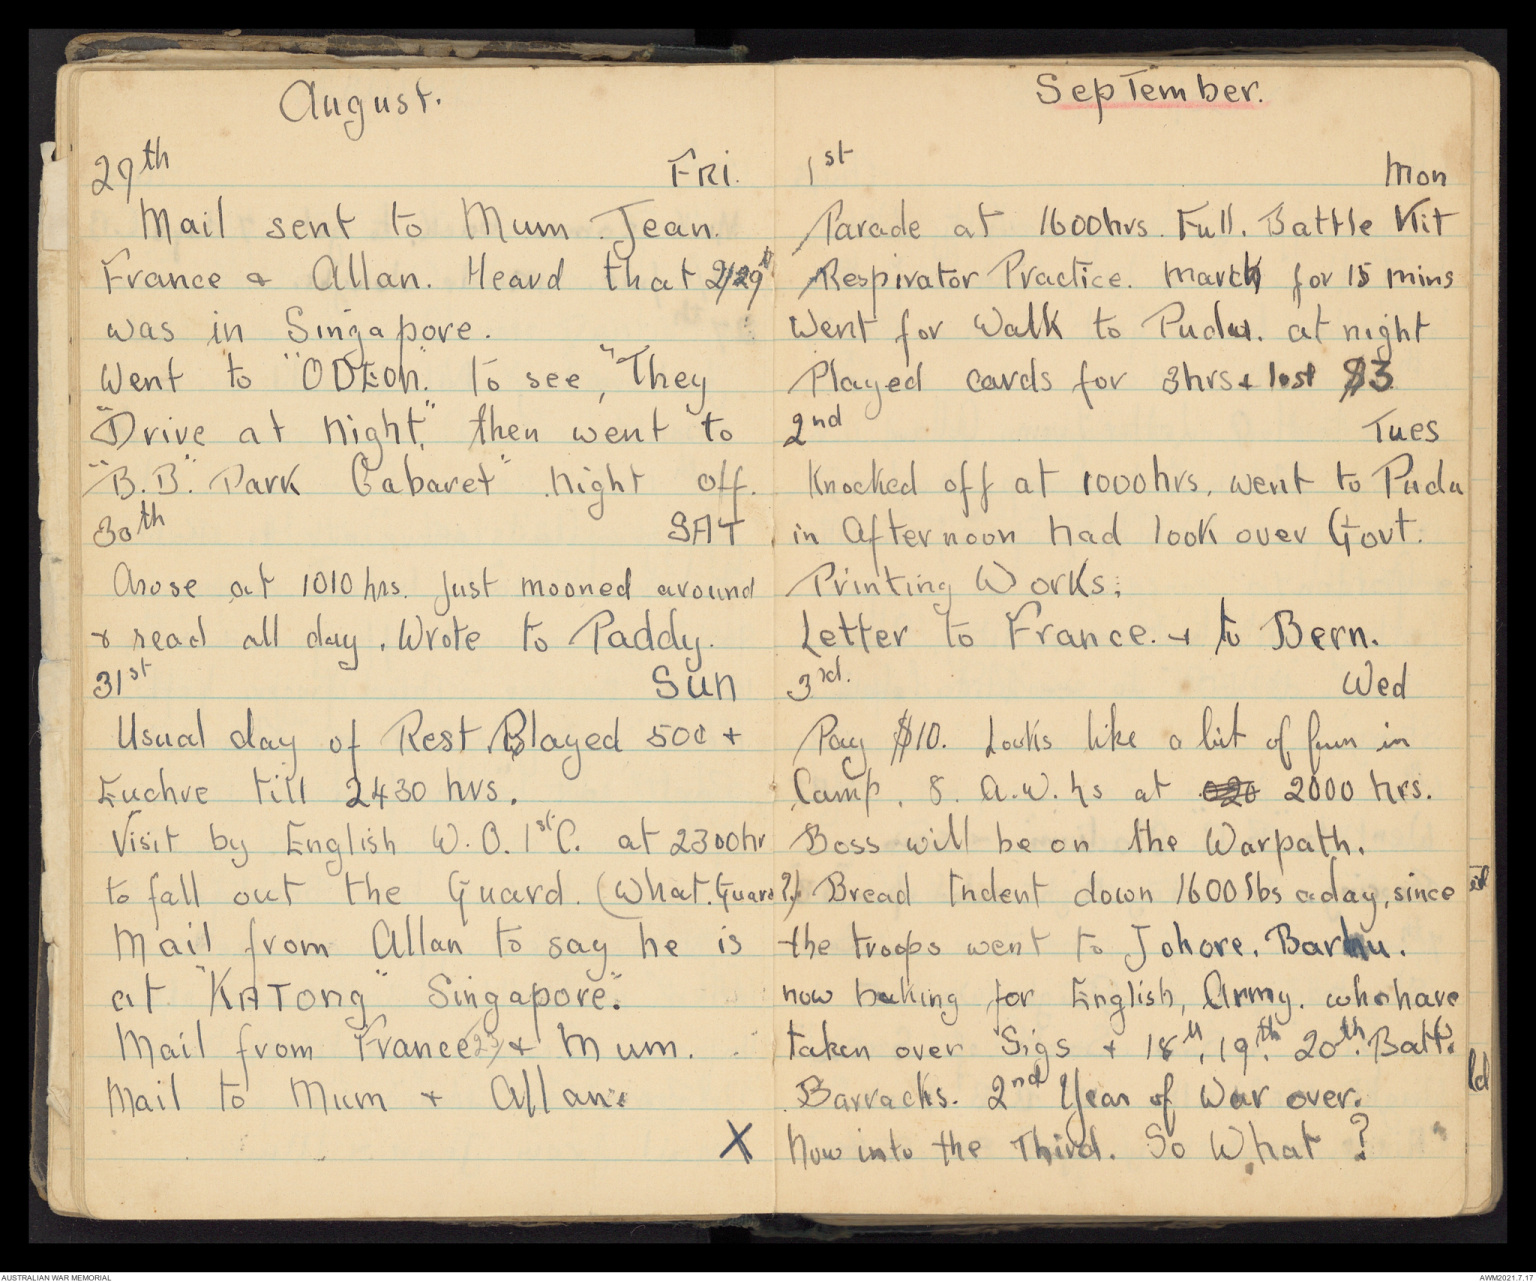 August.
29th FRI.
Mail sent to Mum. Jean.
France & Allan. Heard that 2/29th
was in Singapore.
Went to "ODEON". To see, "They
"Drive at Night", then went to
"B.B". Park Cabaret" Night off.
30th SAT
Arose at 1010 hrs. Just mooned around
& read all day. Wrote to Paddy.
31st Sun
Usual day of Rest. Played 500 +
Euchre till 2430 hrs.
Visit by English W.O. 1st C. at 2300hr
to fall out the Guard. (What. Guard?)
Mail from Allan to say he is
at "KATong" Singapore".
Mail from France & Mum.
Mail to Mum + Allan.
X
September.
1st Mon
Parade at 1600hrs. Full. Battle Kit
Respirator Practice. March for 15 mins
Went for Walk to Pudu. at night
Played cards for 3hrs + lost $3
2nd Tues
Knocked off at 1000hrs, went to Pudu
in Afternoon had look over Govt.
Printing Works;
Letter to France. + to Bern.
3rd. Wed
Pay $10. Looks like a bit of fun in
Camp. 8. A.W.hs at 2000 hrs.
Boss will be on the Warpath.
Bread Indent down 1600lbs a day, since
the troops went to Johore. Barhu.
now baking for English, Army. who have
taken over Sigs + 18th, 19th. 20th. Batt.
Barracks. 2nd Year of War over.
Now into the Third. So What ?
ld
AUSTRALIAN WAR MEMORIAL
AWM2021.7.17